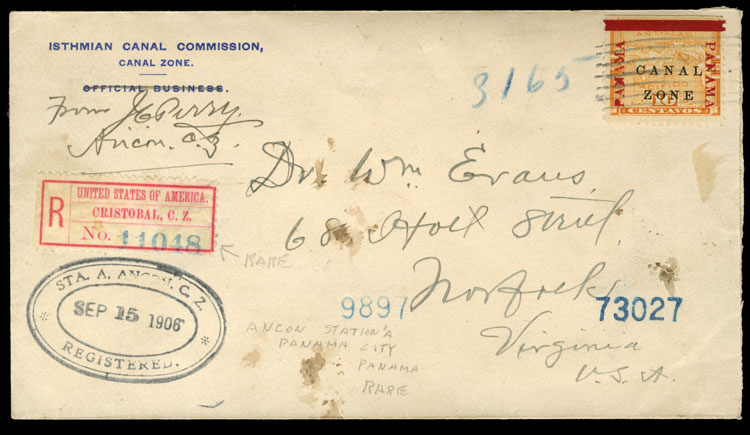 ISTHMIAN CANAL COMMISSION,
CANAL ZONE.
OFFICIAL BUSINESS.
From J C Perry.
Ancon. C. Z.
3165
PANAMA
CANAL
ZONE
PANAMA
10
CENTAVOS
Dr. Wm Evans,
68 Holt Street,
Norfolk
Virginia
U. S. A.
R
UNITED STATES OF AMERICA.
CRISTOBAL, C. Z.
No. 11048
RARE
STA. A. ANCON, C. Z.
SEP 15 1906
REGISTERED.
9897
73027
ANCON STATION'A
PANAMA CITY
PANAMA
RARE